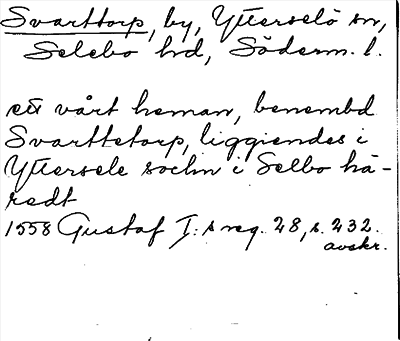 Svarttorp, by, Ytterselö sn,
Selebo hd, Söderm. l.
ett vårt heman, benembd
Svarttetorp, liggiendes i
Yttersele sochn i Selbo hä-
redt
1558 Gustaf I:s reg. 28, s. 232.
avskr.